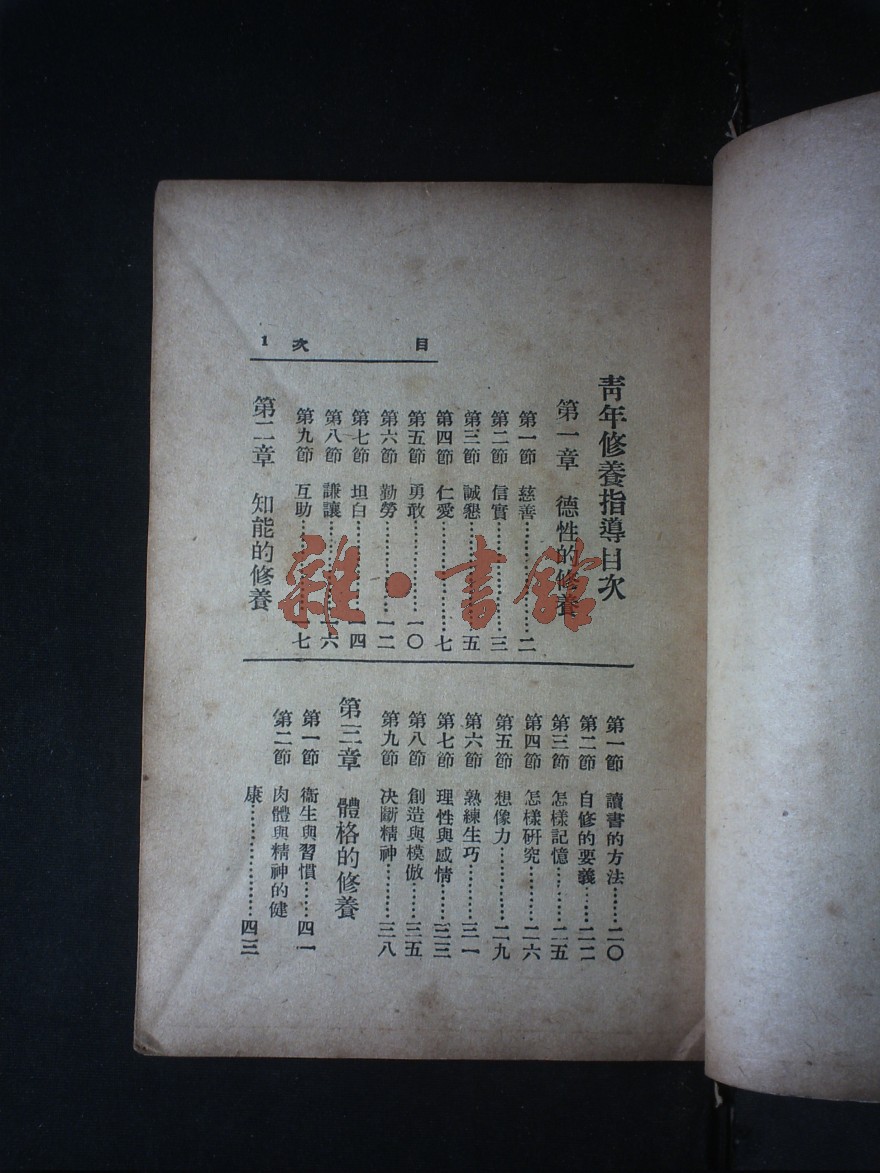 目次 1
青年修養指導目次
第一章 德性的修養
第一節 慈善…………二
第二節 信實…………三
第三節 誠懇…………五
第四節 仁愛…………七
第五節 勇敢…………一〇
第六節 勤勞…………一二
第七節 坦白…………一四
第八節 謙讓…………一六
第九節 互助…………一七
第二章 知能的修養
第一節 讀書的方法……二〇
第二節 自修的要義……二二
第三節 怎樣記憶………二五
第四節 怎樣研究………二六
第五節 想像力…………二九
第六節 熟練生巧………三一
第七節 理性與感情……三三
第八節 創造與模倣……三五
第九節 決斷精神………三八
第三章 體格的修養
第一節 衞生與習慣……四一
第二節 肉體與精神的健
康…………………四三
雜·書館